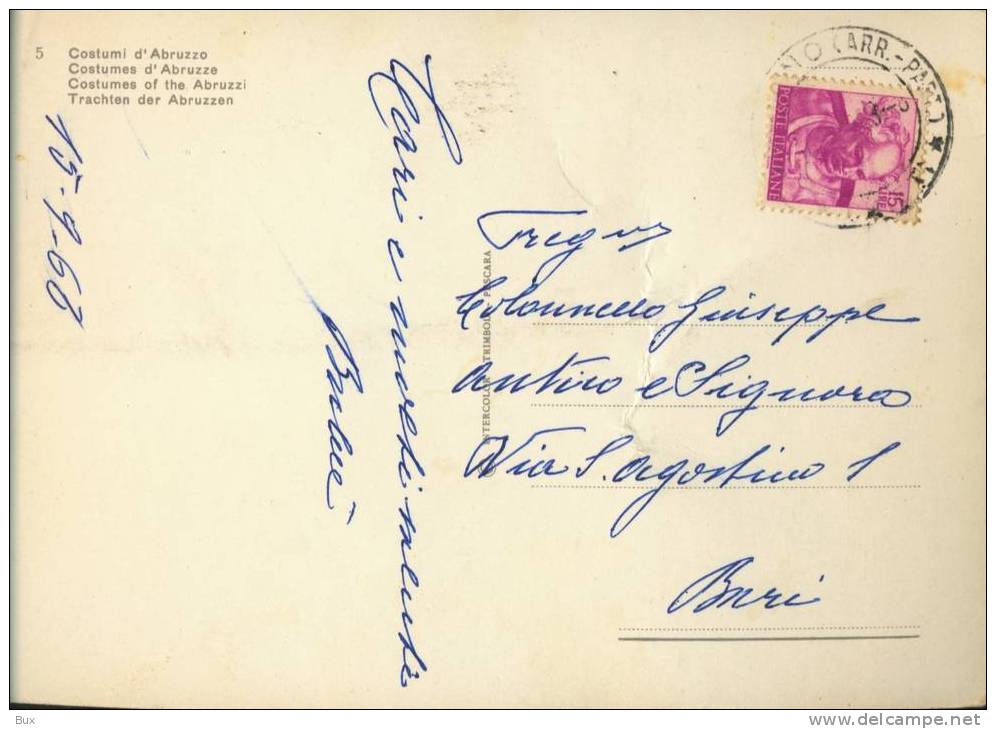 5 Costumi d'Abruzzo
Costumes d'Abruzze
Costumes of the Abruzzi
Trachten der Abruzzen
Cari e mordi saluti
(ARR.-PART.)
POSTE ITALIANE
15
LIRE
© INTERCOLOR TRIMBOLI PESCARA
Colonnello Giuseppe
Antino e Signora
Via S. Agostino 1
Bari
Bux
www.delcampe.net